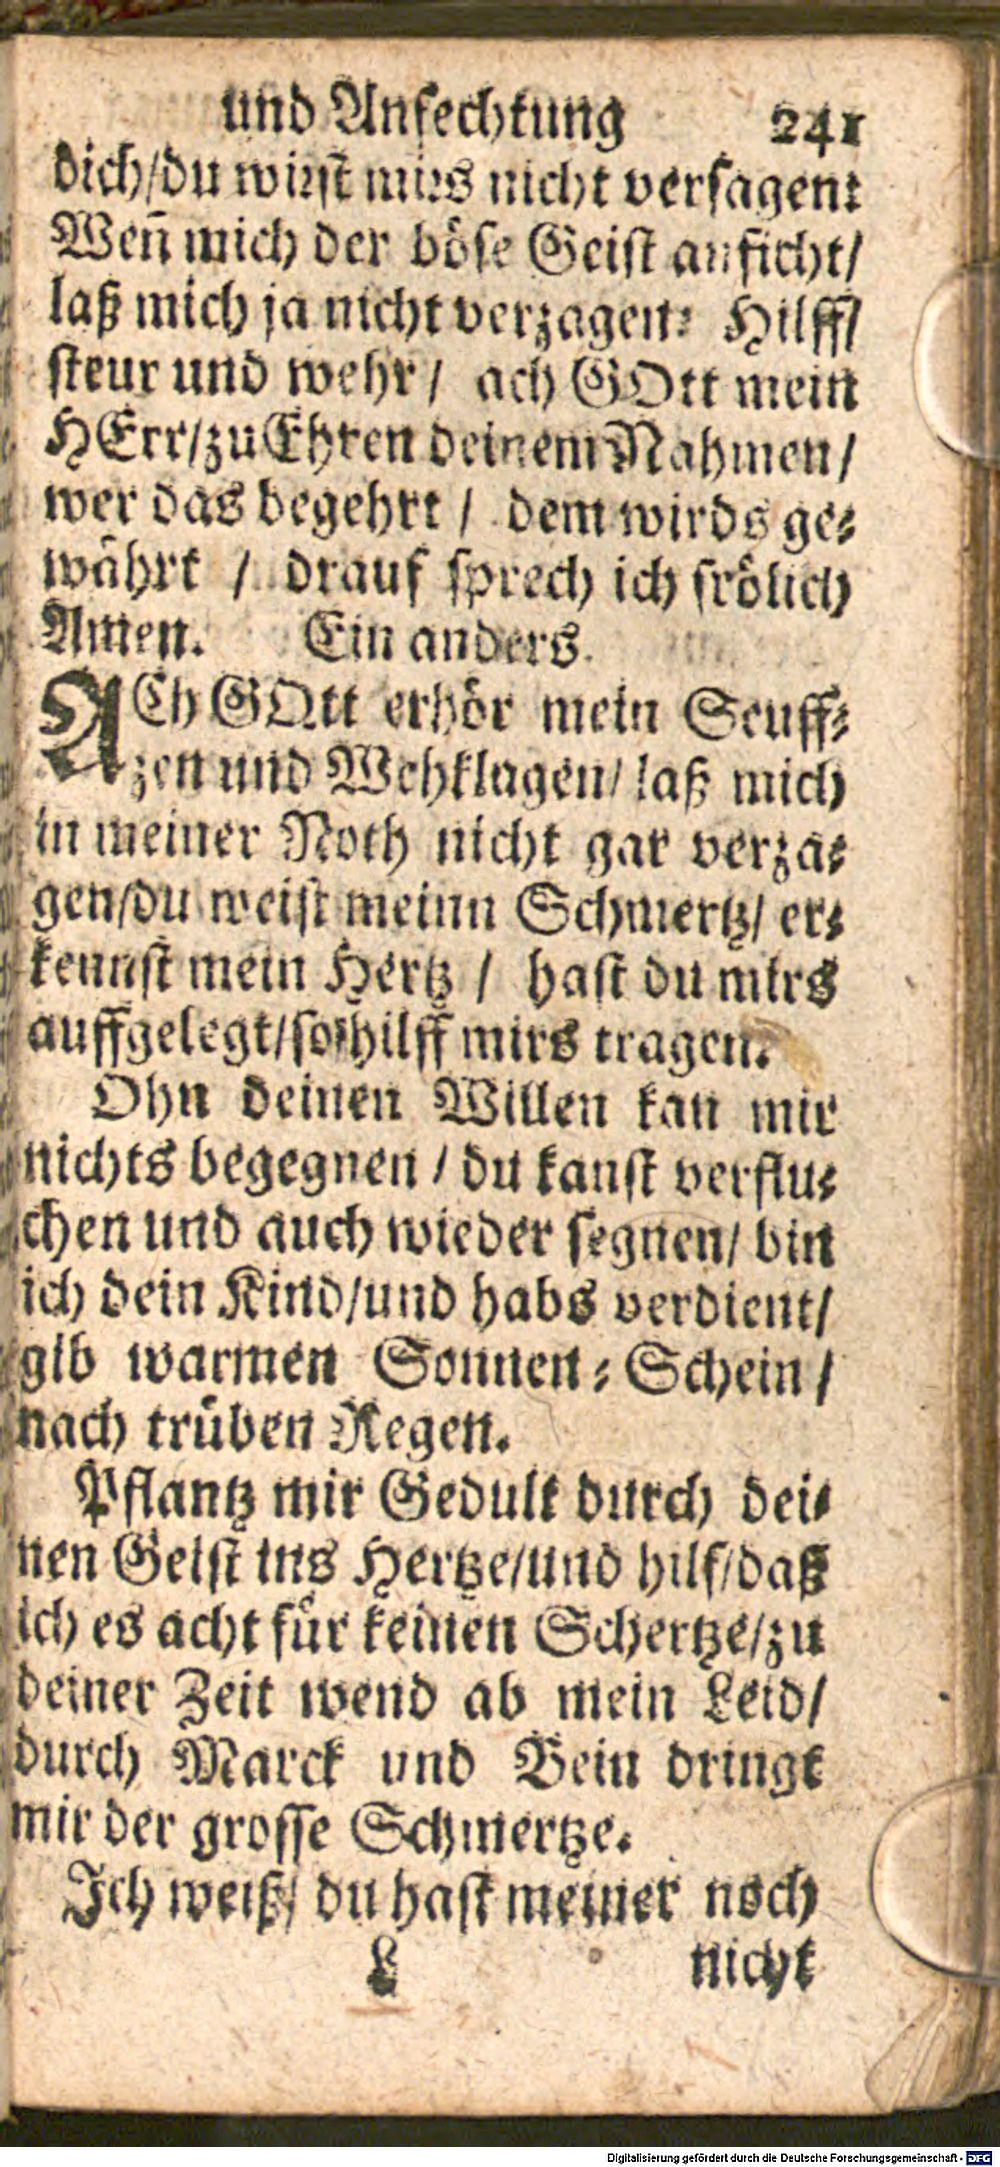 und Anfechtung 241
dich/du wirst mirs nicht versagen:
Weñ mich der böse Geist anficht/
laß mich ja nicht verzagen: Hilff/
steur und wehr/ ach GOtt mein
HErr/zu Ehren deinem Nahmen/
wer das begehrt / dem wirds ge-
währt / drauf sprech ich frölich
Amen. Ein anders.
ACh GOtt erhör mein Seuff-
zen und Wehklagen/ laß mich
in meiner Noth nicht gar verza-
gen/du weist meinn Schmertz/ er-
kennst mein Hertz / hast du mirs
auffgelegt/so hilff mirs tragen.
Ohn deinen Willen kan mir
nichts begegnen / du kanst verflu-
chen und auch wieder segnen/ bin
ich dein Kind/und habs verdient/
gib warmen Sonnen-Schein /
nach trüben Regen.
Pflantz mir Gedult durch dei-
nen Geist ins Hertze/und hilf/daß
ich es acht für keinen Schertze/zu
deiner Zeit wend ab mein Leid/
durch Marck und Bein dringt
mir der grosse Schmertze.
Ich weiß/ du hast meiner noch
L nicht
Digitalisierung gefördert durch die Deutsche Forschungsgemeinschaft - DFG